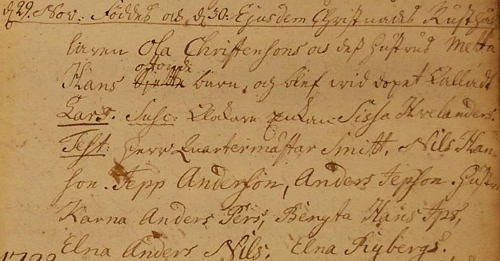 d. 29. Nov. föddes och d. 30. Ejusdem Christnades Rusthål
laren Ola Christensons och dess hustrus Metta
Hans ottonde barn, och blef wid dopet kallad
Lars. Susc: Klokare enkan Sissa Hvelanders.
Test: Herr Quartermästar Smitt, Nils Han
son. Jepp Anderson, Anders Jepson, Hust.
Karna Anders Pers, Bengta Hans Jps,
Elna Anders Nils, Elna Rybergs.